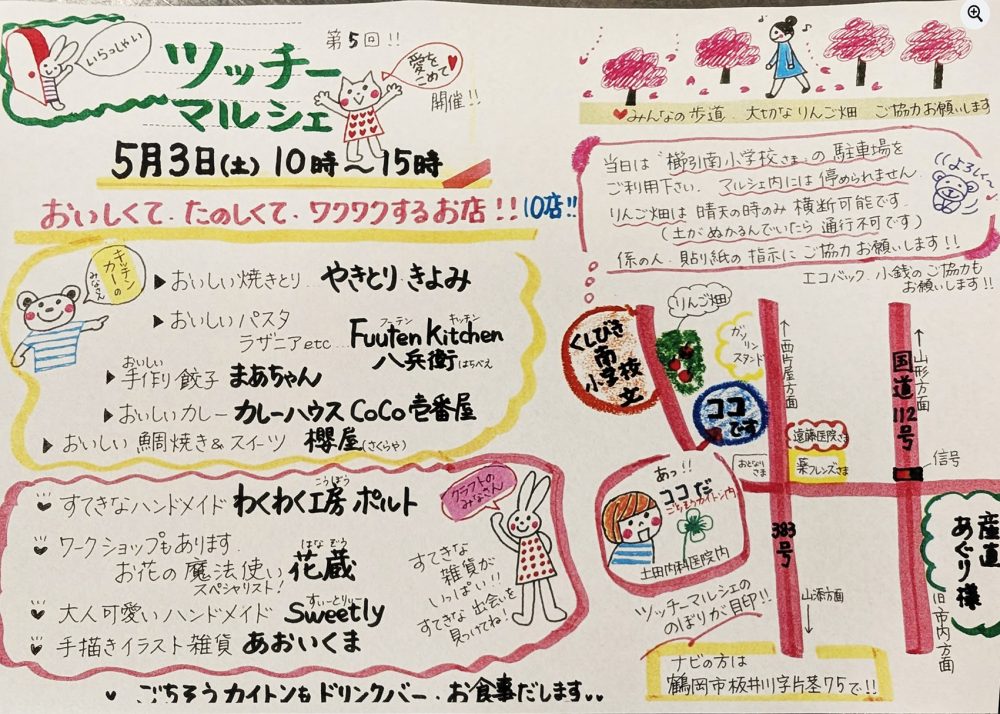 いらっしゃい
第5回!!
ツッチー
マルシェ
愛を
こめて♥
開催!!
5月3日(土) 10時~15時
おいしくて、たのしくて、ワクワクするお店!! 10店!!
キッチン
カーの
みなさん
▶おいしい焼きとり やきとり きよみ
▶おいしいパスタ
ラザニアetc… Fuuten Kitchen
フーテン キッチン
八兵衛(はちべえ)
おいしい
▶手作り餃子 まあちゃん
▶おいしいカレー カレーハウス CoCo壱番屋
▶おいしい 鯛焼き&スイーツ 櫻屋(さくらや)
クラフトの
みなさん
すてきなハンドメイド わくわく工房 ポルト
こうぼう
ワークショップもあります
お花の魔法使い 花蔵
はな ぞう
スペシャリスト!
大人可愛いハンドメイド Sweetly
すいーとりぃー
手描きイラスト雑貨 あおいくま
すてきな
雑貨が
いっぱい!!
すてきな出会いを
見つけてね!
♥ ごちそうカイトンも ドリンクバー、お食事だします
♥みんなの歩道 大切なりんご畑 ご協力お願いします
当日は“櫛引南小学校さま”の駐車場を
ご利用下さい。マルシェ内には停められません
りんご畑は晴天の時のみ横断可能です
(土がぬかるんでいたら通行不可です)
係の人、貼り紙の指示にご協力お願いします!!
よろしく~
エコバック、小銭のご協力も
お願いします!!
くしびき
南
小学校
りんご畑
ガソリン
スタンド
ココ
です
↑西片屋方面
国道112号
↑山形方面
遠藤医院さま
おとなりさま
薬フレンズさま
信号
383号
産直
あぐり様
山添方面
旧市内方面
あっ!!
ココだ
ごちそうカイトン内
土田内科医院内
ツッチーマルシェの
のぼりが目印!!
ナビの方は
鶴岡市板井川字片茎75で!!